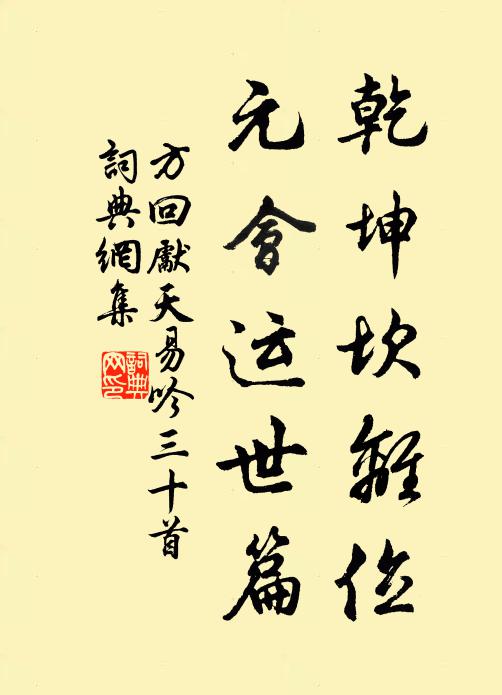 乾坤坎離位
元會运世篇
方回獻天易吟三十首
詞典網集
詞典网印